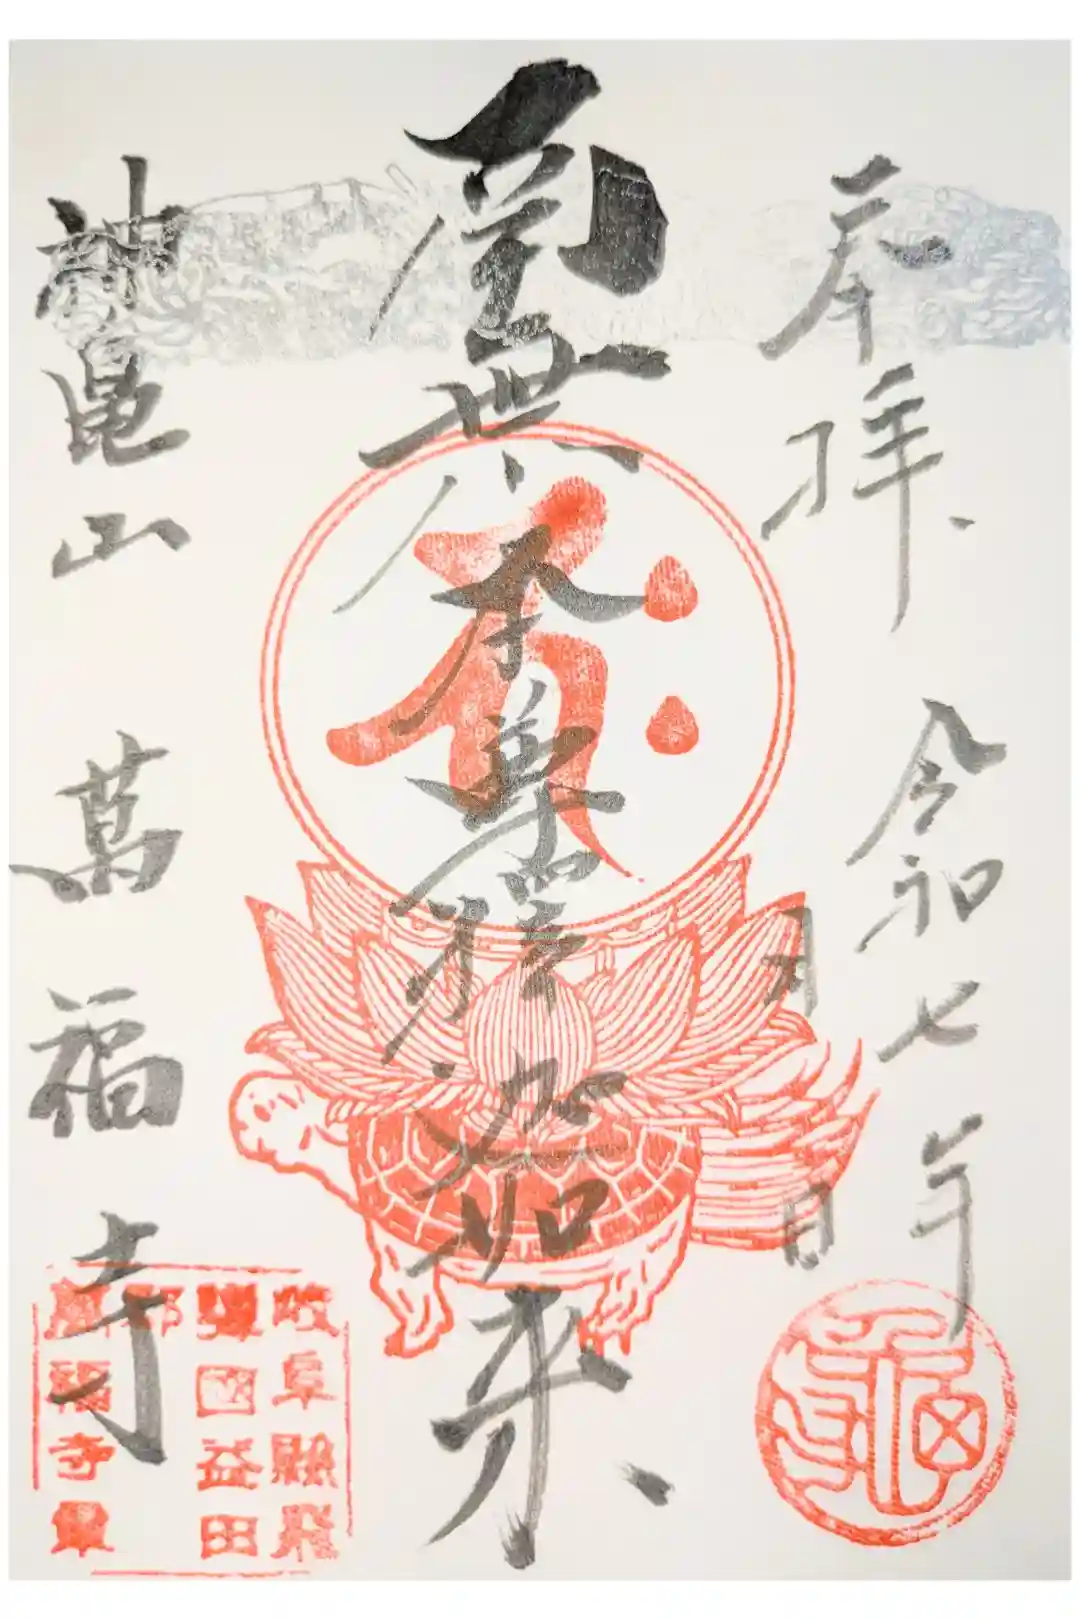 奉拝
令和七年
月 日
南無本尊界会如来
神亀山 萬福寺
岐阜縣飛
騨國益田
郡
萬福寺